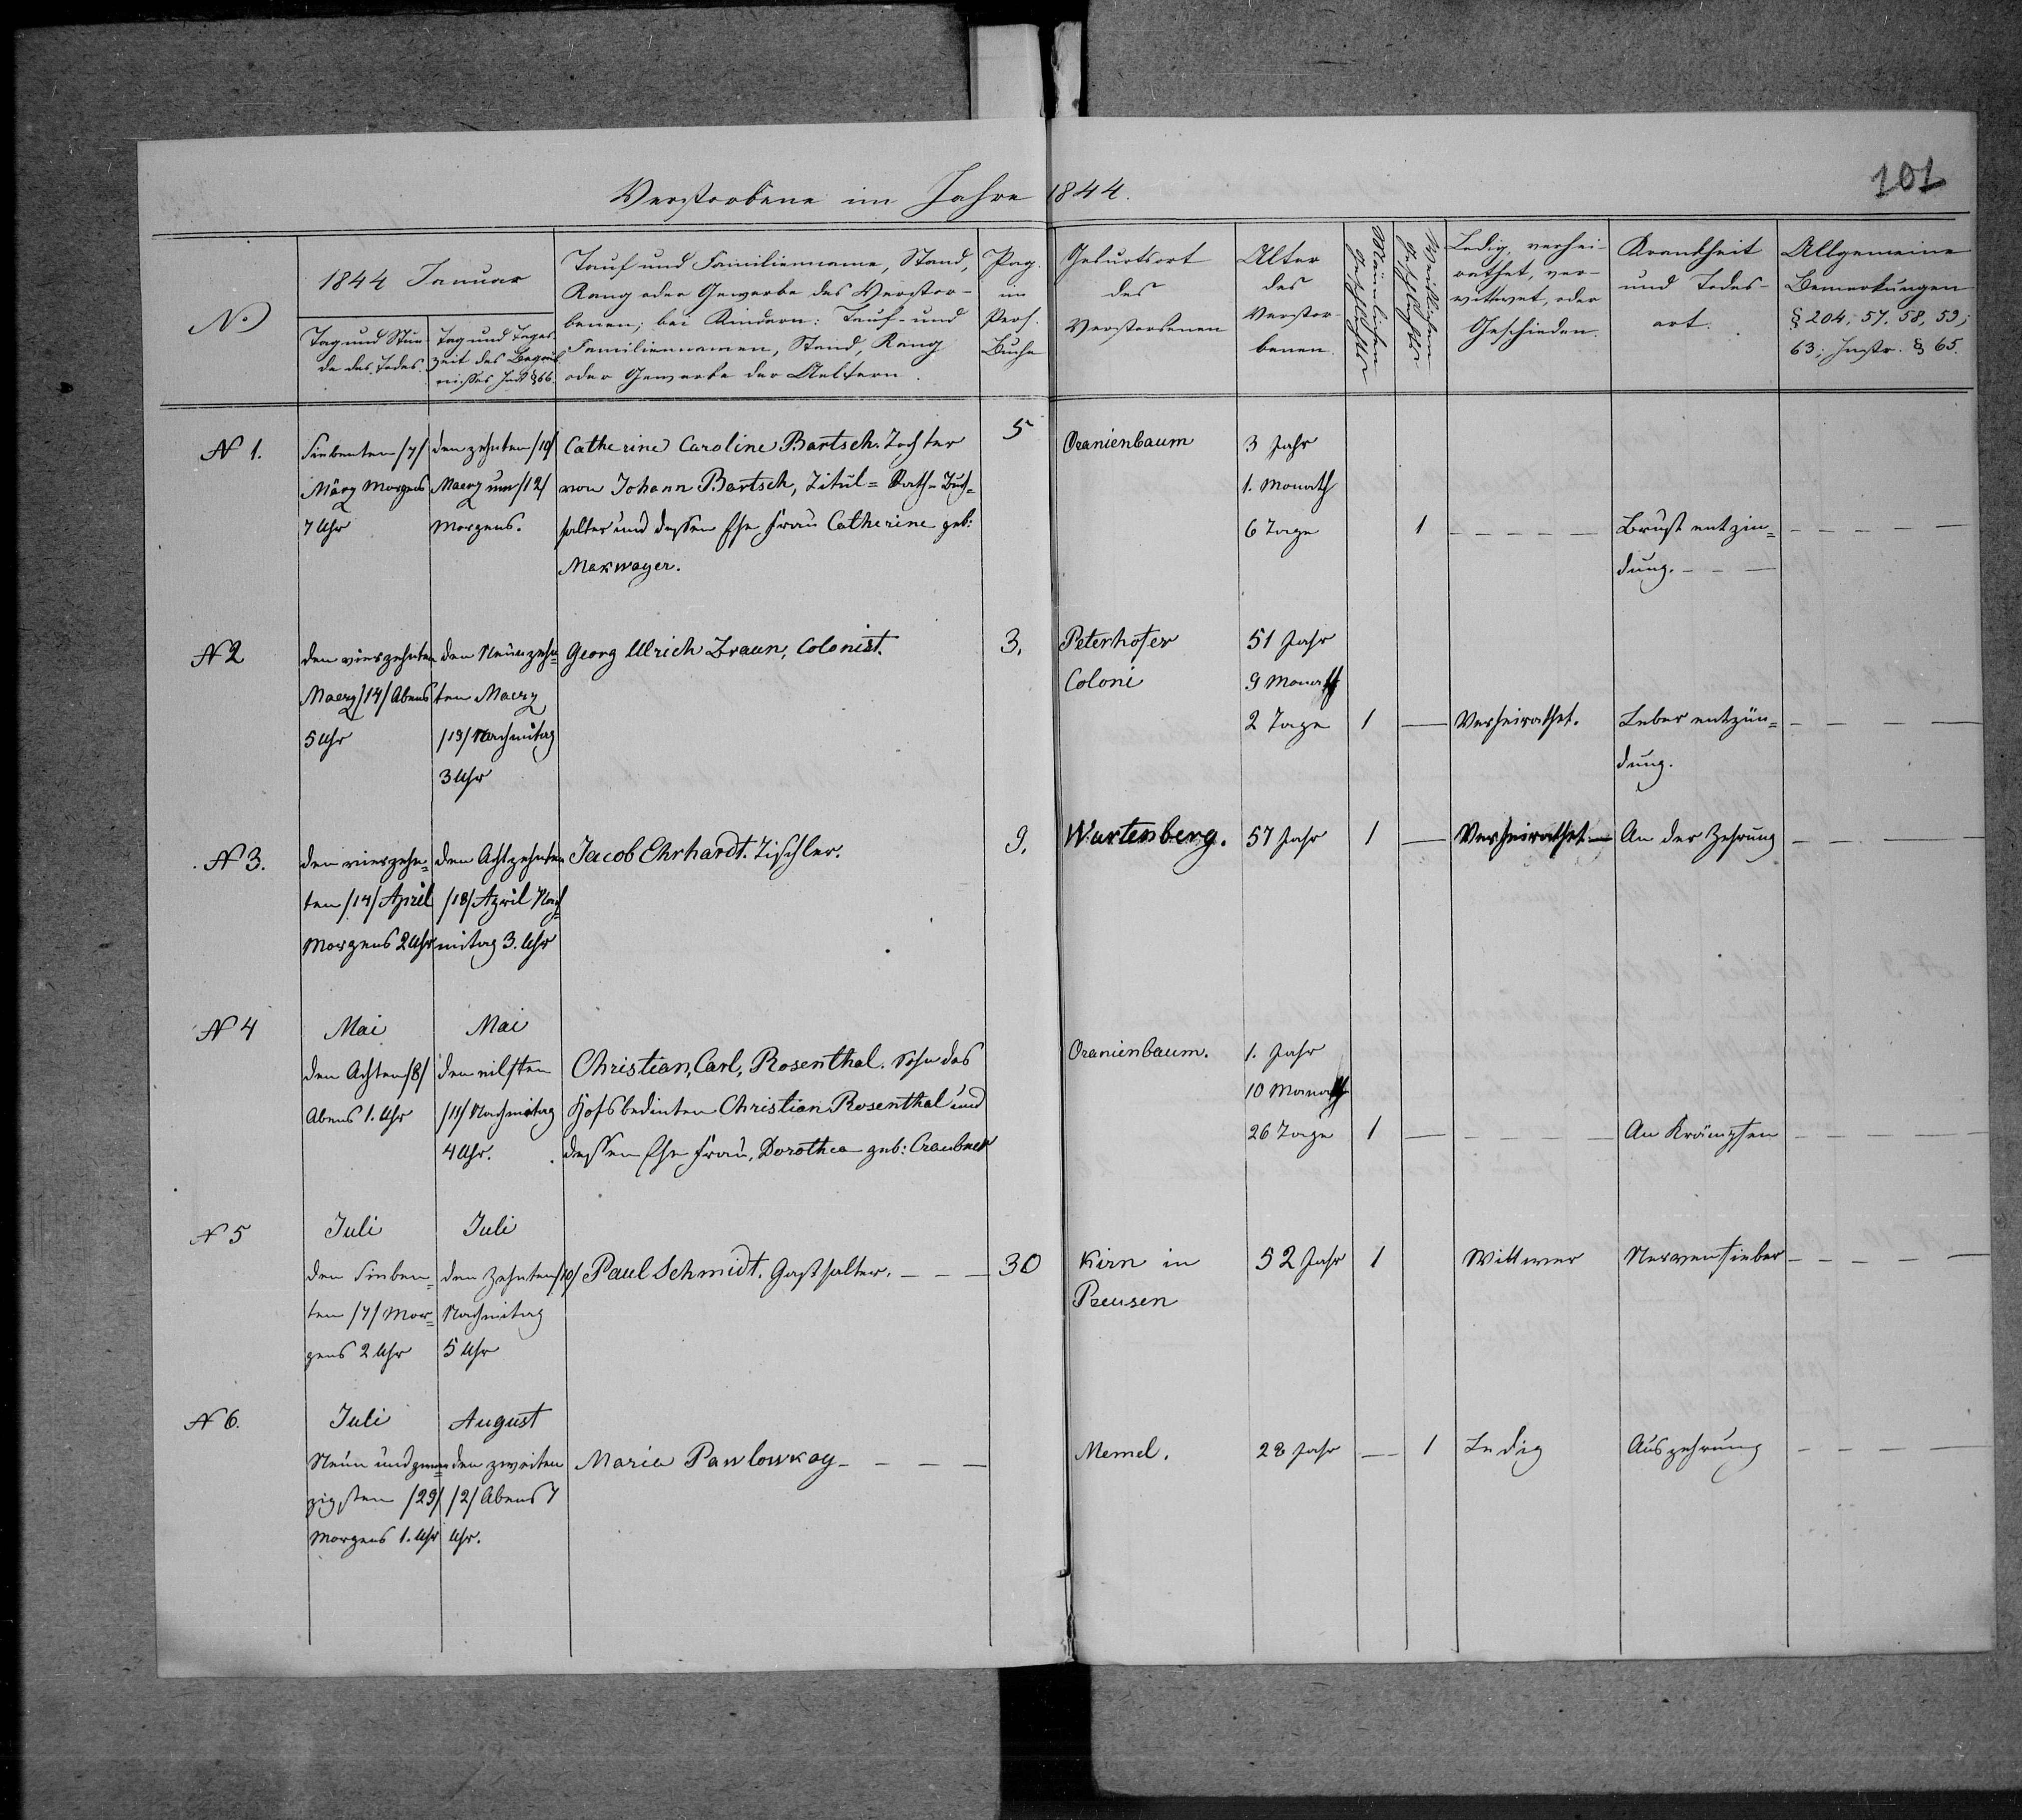 101
Verstorbene im Jahre 1844.
N.
1844 Januar
Tag und Stun-
de des Todes.
Tag und Tages-
zeit des Begräb-
nisses Inst. § 66.
Tauf und Familienname, Stand,
Rang oder Gewerbe des Verstor-
benen; bei Kindern: Tauf- und
Familiennamen, Stand, Rang
oder Gewerbe der Aeltern.
Pag.
im
Pers.
Buche
Geburtsort
des
Verstorbenen
Alter
des
Verstor-
benen.
Männlichen
Geschlechts
Weiblichen
Geschlechts
Ledig, verhei-
rathet, ver-
wittwet, oder
Geschieden.
Krankheit
und Todes-
art.
Allgemeine
Bemerkungen
§ 204; 57. 58, 59;
63; Instr. § 65.
N 1.
Siebenten /7/
März Morgens
7 Uhr
den zehnten /10/
Maerz um /12/
Morgens.
Catherine Caroline Bartsch. Tochter
von Johann Bartsch, Titul = Rath - Buch=
halter und dessen Ehe Frau Catherine geb:
Makwayer.
5
Oranienbaum
3 Jahr
1. Monath
6 Tage
1
Brust entzin=
dung.
N 2
den vierzehnten
Maerz /14/ Abens
5 Uhr
den Neunzehn=
ten Maerz
/19/ Nachmitag
3 Uhr
Georg Ulrich Braun, Colonist.
3.
Peterhofer
Coloni
51 Jahr
9 Monath
2 Tage
1
Verheirathet.
Leber entzün=
dung.
N 3.
den vierzehn=
ten /14/ April
Morgens 2 Uhr
den Achtzehnten
/18/ April Nach=
mitag 3. Uhr
Jacob Ehrhardt. Tischler.
9.
Wartenberg.
57 Jahr
1
Verheirathet
An der Zehrung
N 4
Mai
den Achten /8/
Abens 1. Uhr
Mai
den eilften
/11/ Nachmitag
4 Uhr.
Christian, Carl, Rosenthal. Sohn des
Hofsbedinten Christian Rosenthal und
dessen Ehe Frau, Dorothea geb:
Oranienbaum.
1. Jahr
10 Monath
26 Tage
1
An Krämpfen
N 5
Juli
den Sieben=
ten /7/ Mor=
gens 2 Uhr
Juli
den Zehnten /10/
Nachmitag
5 Uhr
Paul Schmidt. Gasthalter.
30
Kirn in
Preusen
52 Jahr
1
Wittwer
Nervenfieber
N 6.
Juli
Neun und zwan=
zigsten /29/
Morgens 1. Uhr
August
den zweiten
/2/ Abens 7
Uhr.
Maria Pawlowkay
Memel.
28 Jahr
1
Ledig
Auszehrung